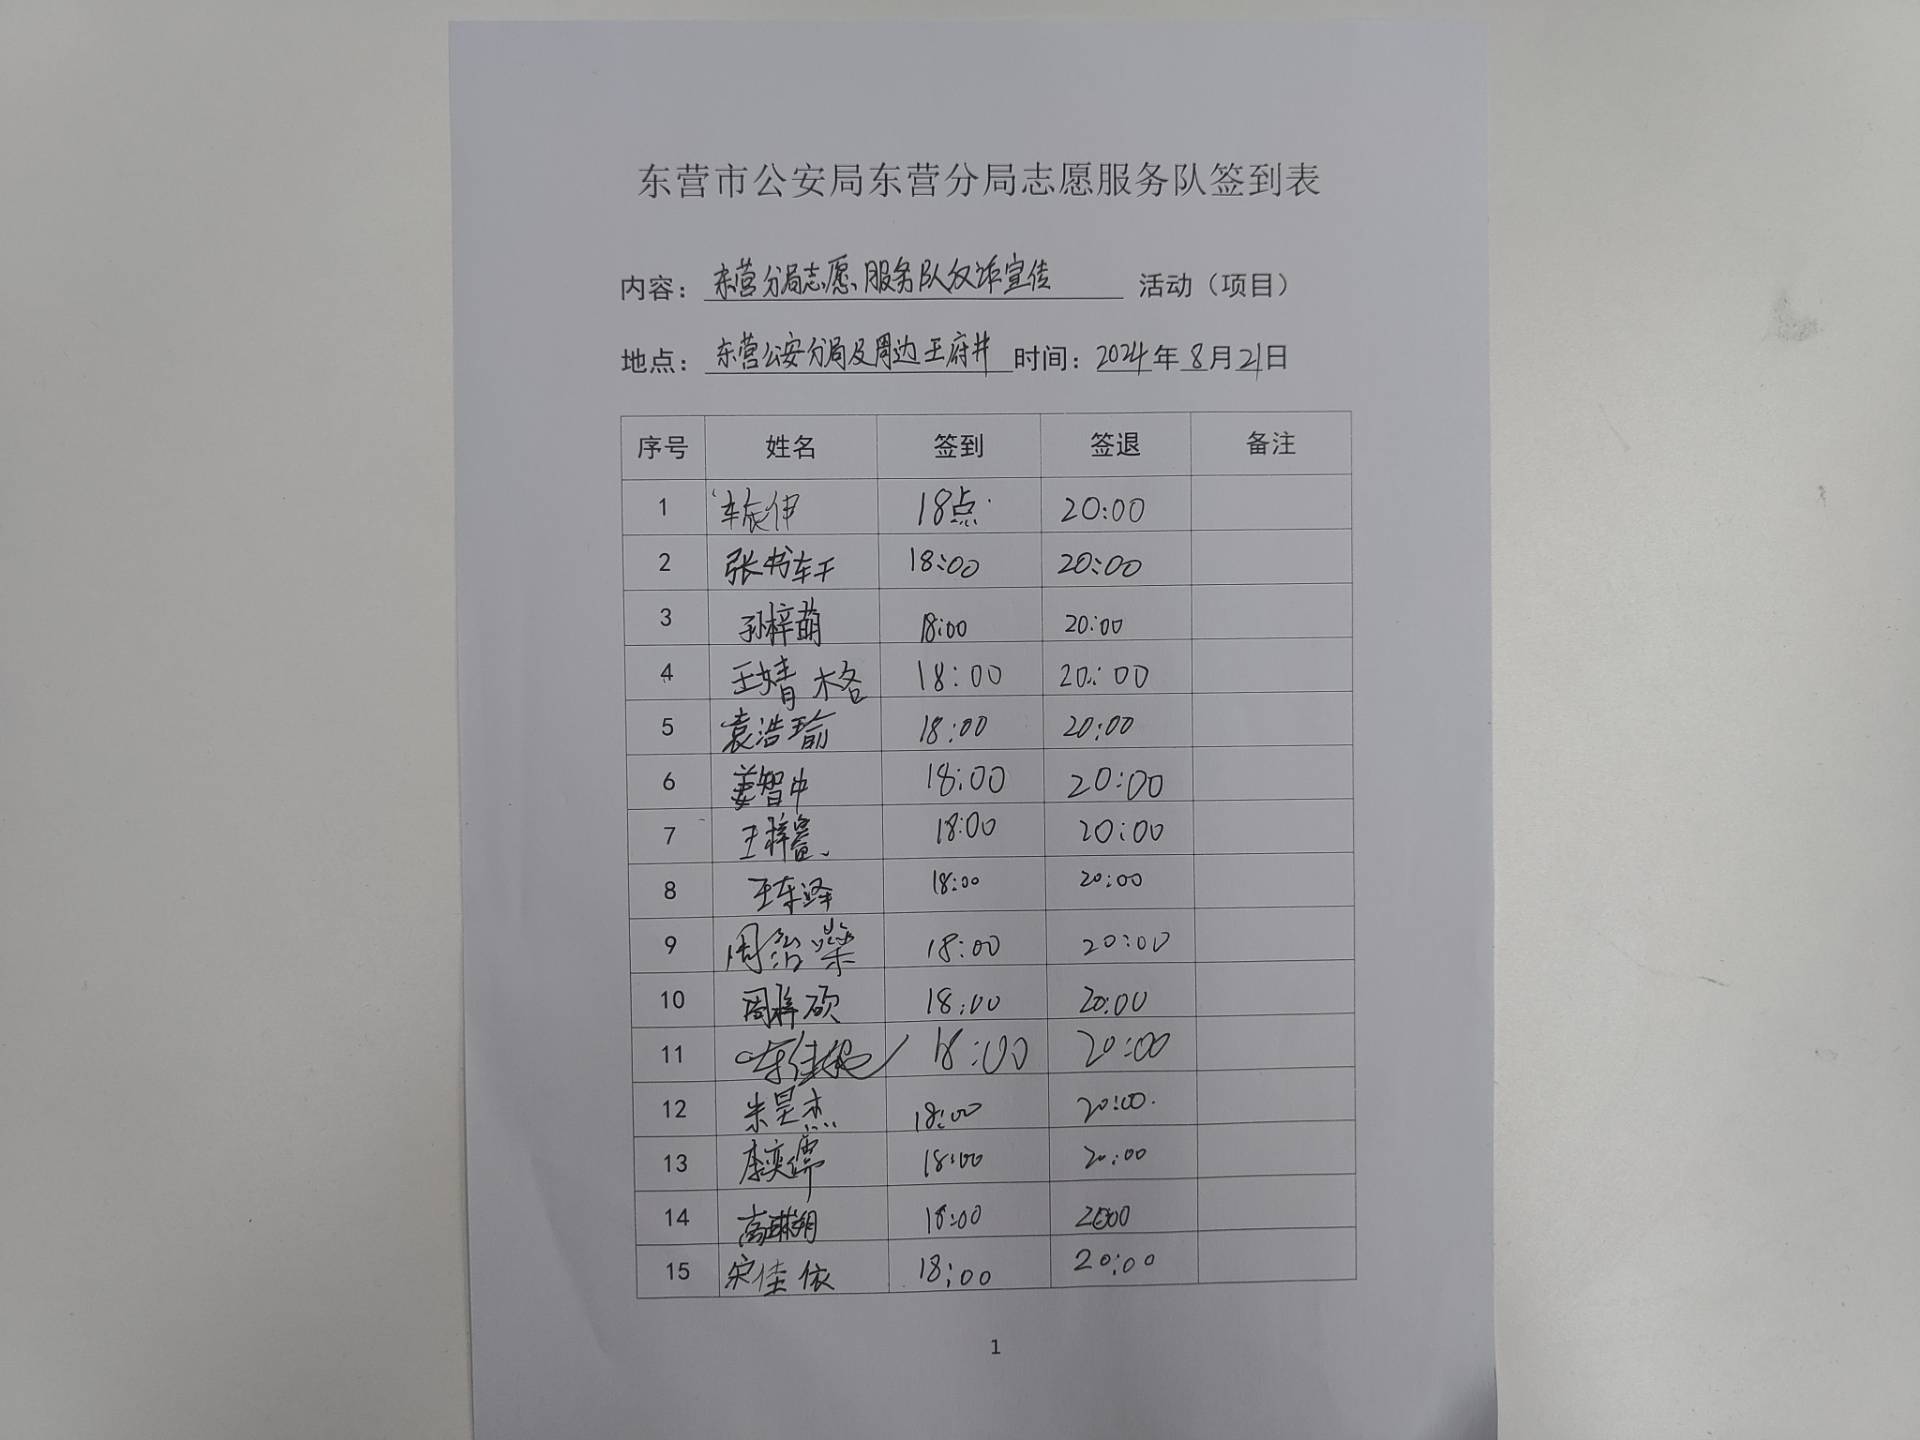 东营市公安局东营分局志愿服务队签到表
内容：东营分局志愿服务队反诈宣传 活动（项目）
地点：东营公安分局及周边王府井 时间：2024年8月21日
序号 姓名 签到 签退 备注
1 车辰伊 18点 20:00
2 张书轩 18:00 20:00
3 孙梓萌 18:00 20:00
4 王婧格 18:00 20:00
5 袁浩瑜 18:00 20:00
6 姜智中 18:00 20:00
7 王梓 18:00 20:00
8 王东泽 18:00 20:00
9 周紹燊 18:00 20:00
10 周梓硕 18:00 20:00
11 18:00 20:00
12 朱昱杰 18:00 20:00
13 李奕霈 18:00 20:00
14 高琳朔 18:00 20:00
15 宋佳依 18:00 20:00
1